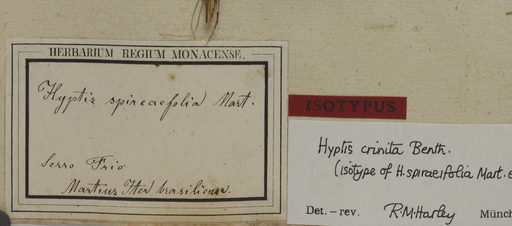 HERBARIUM REGIUM MONACENSE.
Hyptis spiraeafolia Mart.
Serro Frio
Martius Iter brasiliense.
ISOTYPUS
Hyptis crinita Benth.
(isotype of H. spiraeifolia Mart. e
Det. – rev. R.M. Harley Münch